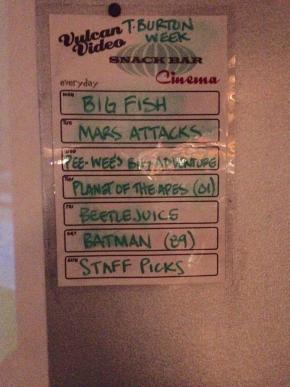 Vulcan Video
T. BURTON WEEK
SNACK BAR
Cinema
everyday
MON BIG FISH
TUE MARS ATTACKS
WED PEE-WEE'S BIG ADVENTURE
THU PLANET OF THE APES (01)
FRI BEETLEJUICE
SAT BATMAN (89)
SUN STAFF PICKS